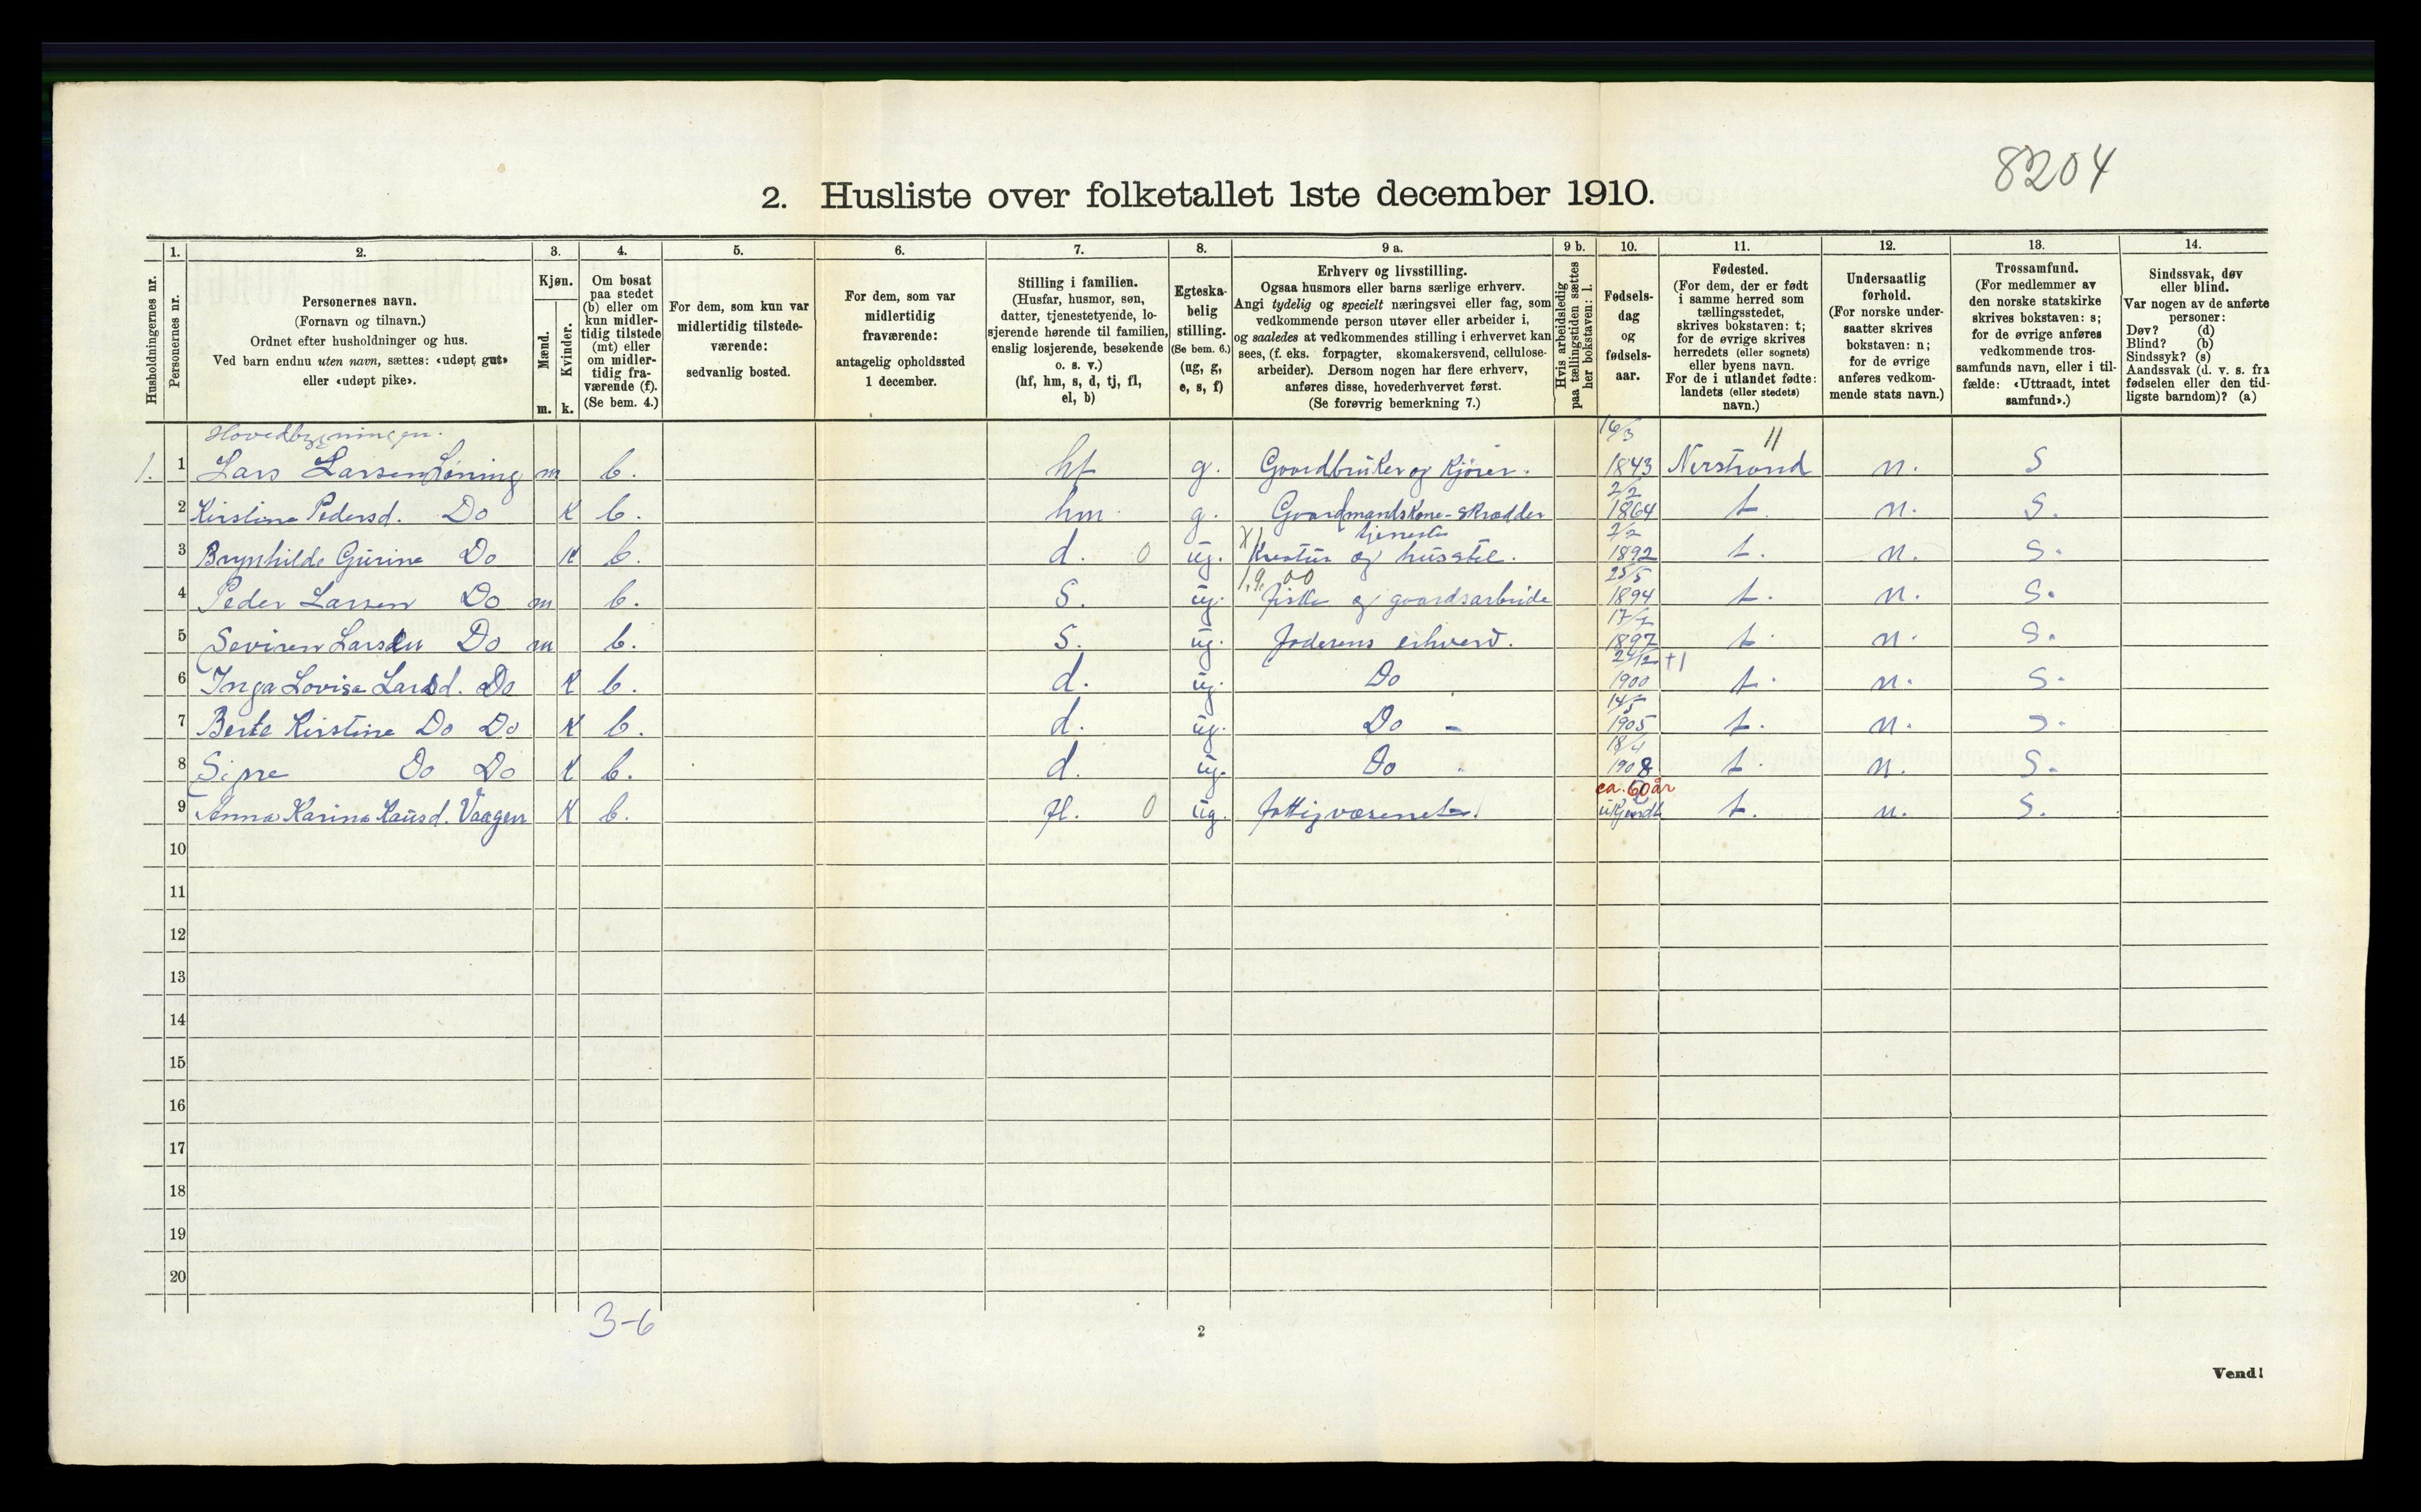 8204
2. Husliste over folketallet 1ste december 1910.
Husholdningernes nr.
1. Personernes nr.
2. Personernes navn.
(Fornavn og tilnavn.)
Ordnet efter husholdninger og hus.
Ved barn endnu uten navn, sættes: «udøpt gut»
eller «udøpt pike».
3. Kjøn.
Mænd. m.
Kvinder. k.
4. Om bosat
paa stedet
(b) eller om
kun midler-
tidig tilstede
(mt) eller
om midler-
tidig fra-
værende (f).
(Se bem. 4.)
5. For dem, som kun var
midlertidig tilstede-
værende:
sedvanlig bosted.
6. For dem, som var
midlertidig
fraværende:
antagelig opholdssted
1 december.
7. Stilling i familien.
(Husfar, husmor, søn,
datter, tjenestetyende, lo-
sjerende hørende til familien,
enslig losjerende, besøkende
o. s. v.)
(hf, hm, s, d, tj, fl,
el, b)
8. Egteska-
belig
stilling.
(Se bem. 6.)
(ug, g,
e, s, f)
9 a. Erhverv og livsstilling.
Ogsaa husmors eller barns særlige erhverv.
Angi tydelig og specielt næringsvei eller fag, som
vedkommende person utøver eller arbeider i,
og saaledes at vedkommendes stilling i erhvervet kan
sees, (f. eks. forpagter, skomakersvend, cellulose-
arbeider). Dersom nogen har flere erhverv,
anføres disse, hovederhvervet først.
(Se forøvrig bemerkning 7.)
9 b. Hvis arbeidsledig
paa tællingstiden sættes
her bokstaven: l.
10. Fødsels-
dag
og
fødsels-
aar.
11. Fødested.
(For dem, der er født
i samme herred som
tællingsstedet,
skrives bokstaven: t;
for de øvrige skrives
herredets (eller sognets)
eller byens navn.
For de i utlandet fødte:
landets (eller stedets)
navn.)
12. Undersaatlig
forhold.
(For norske under-
saatter skrives
bokstaven: n;
for de øvrige
anføres vedkom-
mende stats navn.)
13. Trossamfund.
(For medlemmer av
den norske statskirke
skrives bokstaven: s;
for de øvrige anføres
vedkommende tros-
samfunds navn, eller i til-
fælde: «Uttraadt, intet
samfund».)
14. Sindssvak, døv
eller blind.
Var nogen av de anførte
personer:
Døv? (d)
Blind? (b)
Sindssyk? (s)
Aandssvak (d. v. s. fra
fødselen eller den tid-
ligste barndom)? (a)
Hovedbygningen.
1. 1 Lars Larsen Løning m b. hf g. Gaardbruker og Kjører. 16/3 1843 Nerstrand 11 n. S
2 Kirstine Pedersd. Do K b. hm g. Gaardmandskone-Skrædder 2/2 1864 t. n. S.
3 Brynhilde Gurine Do K b. d. 0 ug. Kreatur og husstel. tjeneste 2/2 1892 t. n. S.
4 Peder Larsen Do m b. S. ug. fiske og gaardsarbeide 25/5 1894 t. n. S.
5 Seviren Larsen Do m b. S. ug. faderens erhverv. 1897 t. n. S.
6 Inga Lovise Larsd. Do K b. d. ug. Do 24/12 1900 t. n. S.
7 Berte Kirstine Do Do K b. d. ug. Do - 14/5 1905 t. n. S.
8 Signe Do Do K b. d. ug. Do 18/4 1908 t. n. S.
9 Anna Karina Knusd. Vaagen K b. fl. 0 ug. fattigvæsenet ca. 60 år ukjendt t. n. S.
10
11
12
13
14
15
16
17
18
19
20
3-6
2
Vend!